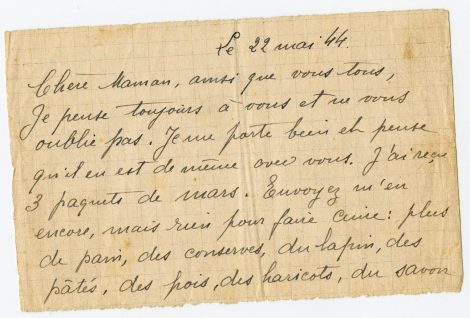 Le 22 mai 44.
Chère Maman, ainsi que vous tous,
Je pense toujours à vous et ne vous
oublie pas. Je me porte bien et pense
qu'il en est de même avec vous. J'ai reçu
3 paquets de mars. Envoyez m'en
encore, mais rien pour faire cuire : plus
de pain, des conserves, du lapin, des
pâtés, des pois, des haricots, du savon